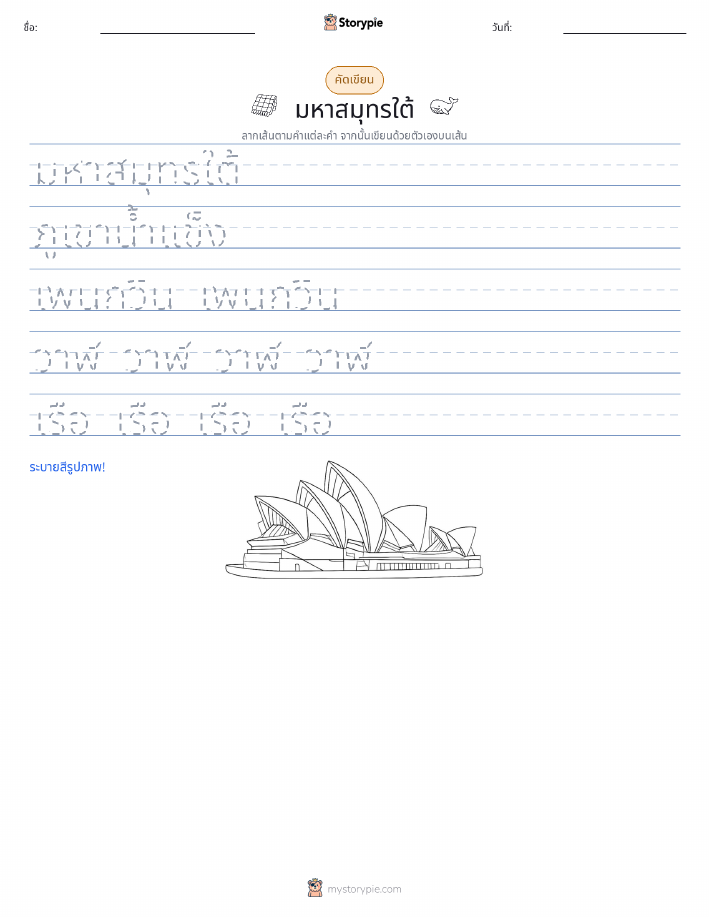 ชื่อ: Storypie วันที่:
คัดเขียน
มหาสมุทรใต้
ลากเส้นตามคำแต่ละคำ จากนั้นเขียนด้วยตัวเองบนเส้น
มหาสมุทรใต้
ภูเขาน้ำแข็ง
เพนกวิน เพนกวิน
วาฬ วาฬ วาฬ วาฬ
เรือ เรือ เรือ เรือ
ระบายสีรูปภาพ!
mystorypie.com